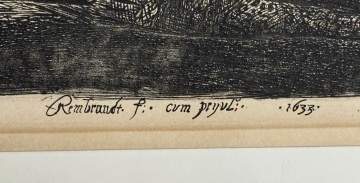 Rembrandt. f: · cum pryvl: · · 1633 ·